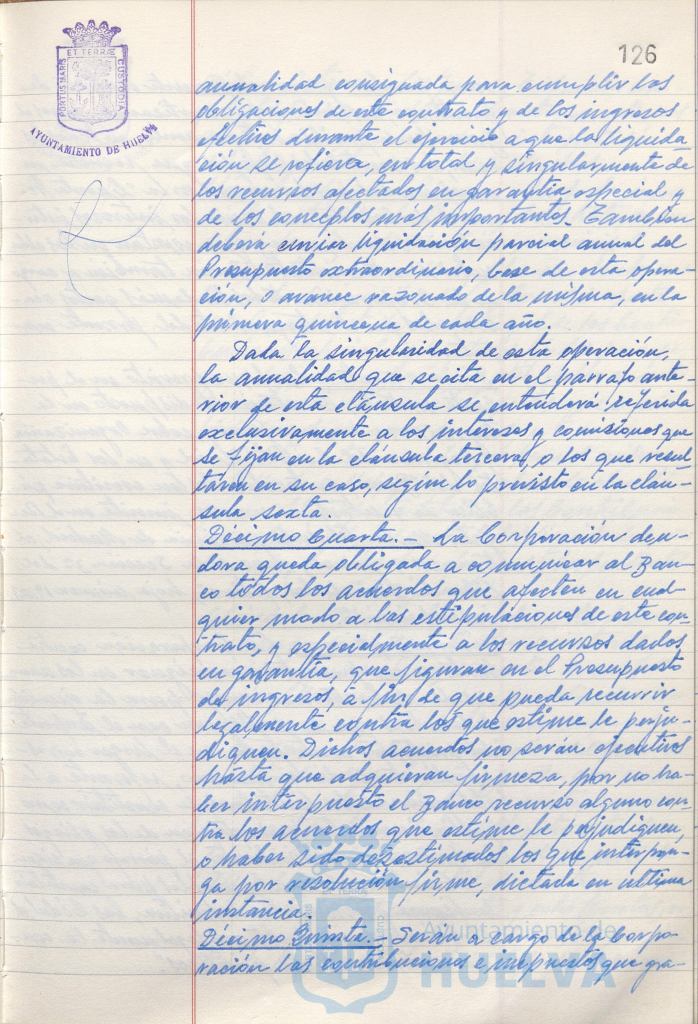 126
PORTUS MARIS
ET TERRÆ
CUSTODIA
AYUNTAMIENTO DE HUELVA
anualidad consignada para cumplir las
obligaciones de este contrato y de los ingresos
efectivos durante el ejercicio a que la liquida
ción se refiera, en total y singularmente de
los recursos afectados en garantía especial y
de los conceptos más importantes. También
deberá enviar liquidación parcial anual del
Presupuesto extraordinario, base de esta opera-
ción, o avance razonado de la misma, en la
primera quincena de cada año.
Dada la singularidad de esta operación,
la anualidad que se cita en el párrafo ante-
rior de esta cláusula se entenderá referida
exclusivamente a los intereses y comisiones que
se fijan en la cláusula tercera, o los que resul-
taren en su caso, según lo previsto en la cláu-
sula sexta.
Décimo Cuarta.- La Corporación deu-
dora queda obligada a comunicar al Ban-
co todos los acuerdos que afecten en cual-
quier modo a las estipulaciones de este con-
trato, y especialmente a los recursos dados
en garantía, que figuran en el Presupuesto
de ingresos, a fin de que pueda recurrir
legalmente contra los que estime le perju-
diquen. Dichos acuerdos no serán ejecutivos
hasta que adquieran firmeza, por no ha-
ber interpuesto el Banco recurso alguno con-
tra los acuerdos que estime le perjudiquen,
o haber sido desestimados los que interpon-
ga por resolución firme, dictada en última
instancia.
Décimo Quinta.- Serán a cargo de la Corpo-
ración las contribuciones e impuestos que gra-
Ayuntamiento de
HUELVA